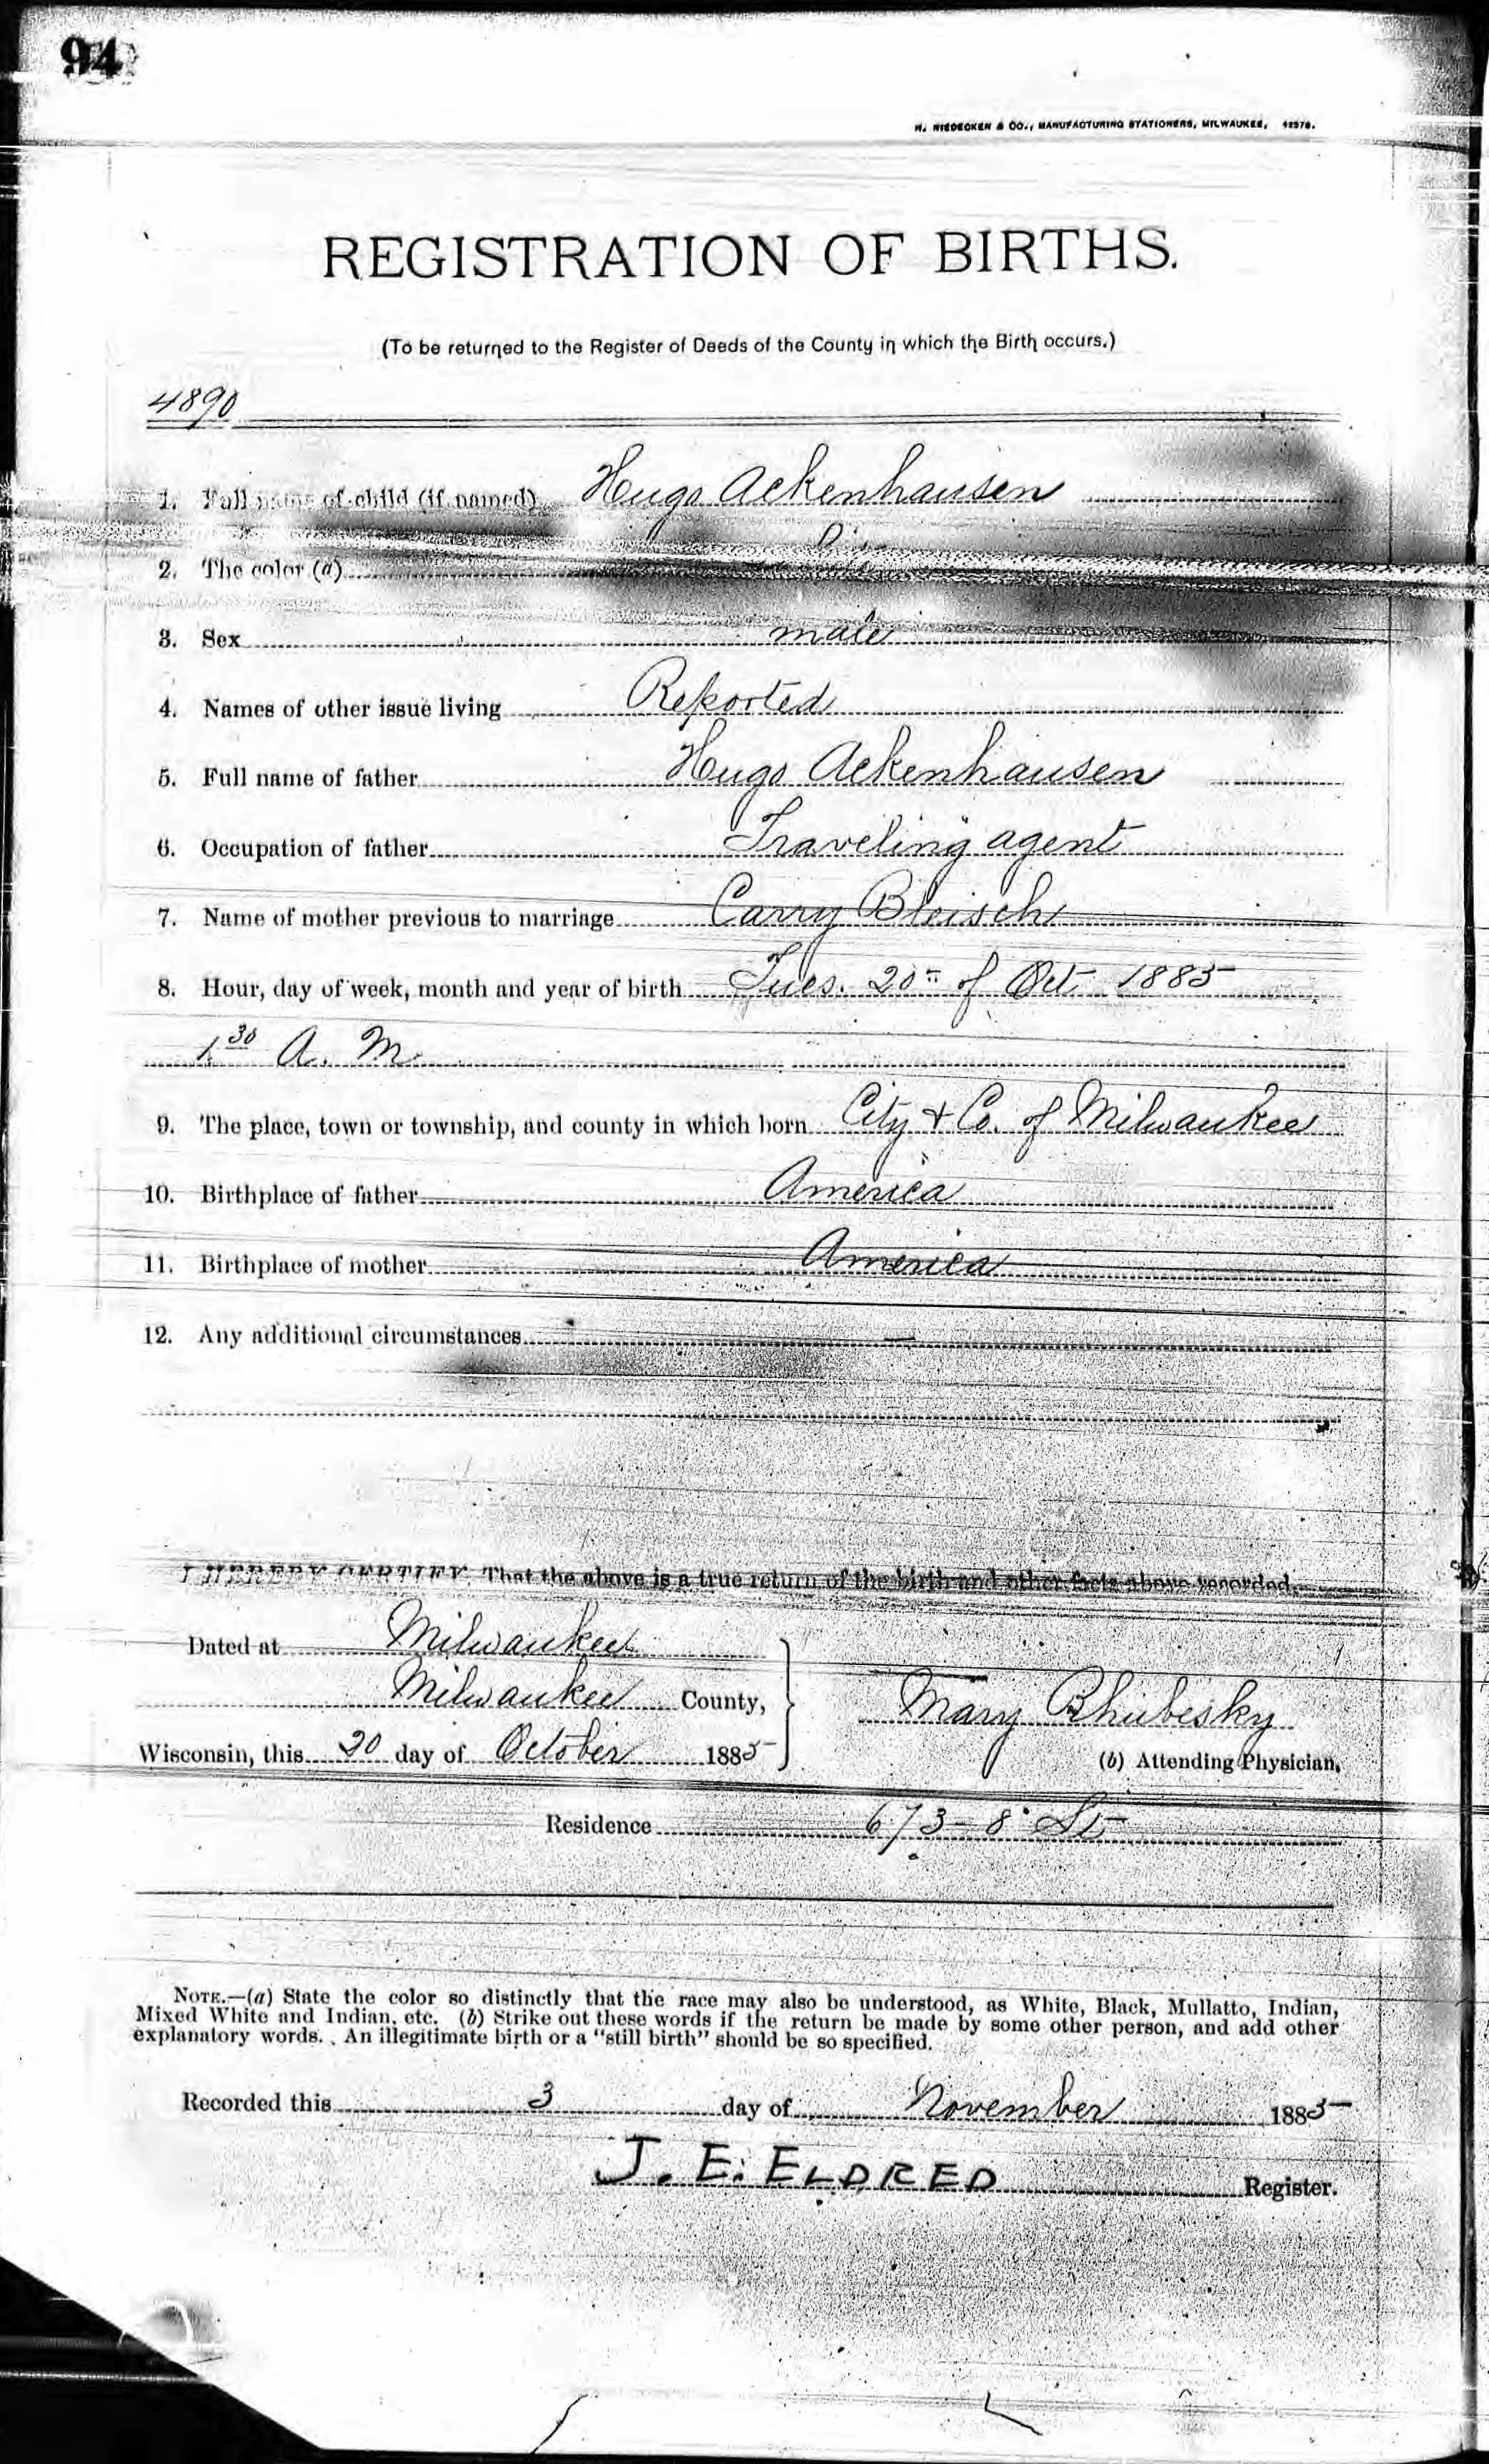 94
H. NIEDECKEN & CO., MANUFACTURING STATIONERS, MILWAUKEE, 42378.
REGISTRATION OF BIRTHS.
(To be returned to the Register of Deeds of the County in which the Birth occurs.)
4890
1. Full name of child (if named) Hugo Ackenhausen
2. The color (a)
3. Sex male
4. Names of other issue living Reported
5. Full name of father Hugo Ackenhausen
6. Occupation of father Traveling agent
7. Name of mother previous to marriage Carry Bleisch
8. Hour, day of week, month and year of birth Tues. 20th of Oct. 1885
1 30 A. M.
9. The place, town or township, and county in which born City & Co. of Milwaukee
10. Birthplace of father America
11. Birthplace of mother America
12. Any additional circumstances —
I HEREBY CERTIFY That the above is a true return of the birth and other facts above recorded.
Dated at Milwaukee
Milwaukee County,
Mary Rhubesky
Wisconsin, this 20 day of October 1885
(b) Attending Physician.
Residence 673-8 St
NOTE.—(a) State the color so distinctly that the race may also be understood, as White, Black, Mullatto, Indian,
Mixed White and Indian, etc. (b) Strike out these words if the return be made by some other person, and add other
explanatory words. An illegitimate birth or a "still birth" should be so specified.
Recorded this 3 day of November 1885
J. E. ELDRED Register.